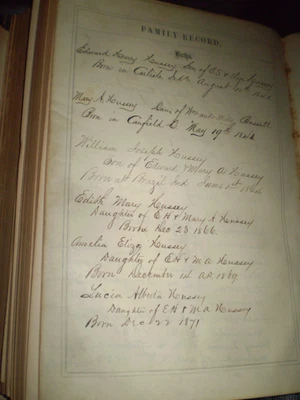 FAMILY RECORD.
Births
Edward Henry Hussey Son of
Born in Carlisle Ind. August
Mary A. Hussey Daug of
Born in Canfield O. May 19th
William Joseph Hussey
Son of Edward & Mary A. Hussey
Born at Brazil Ind June 1st
Edith Mary Hussey
Daughter of E H & Mary A Hussey
Born Dec 23 1866.
Amelia Eliza Hussey
Daughter of E H & M A Hussey
Born December 1st A.D. 1869
Lucia Alberta Hussey
Daughter of E H & M A Hussey
Born Dec 22 1871